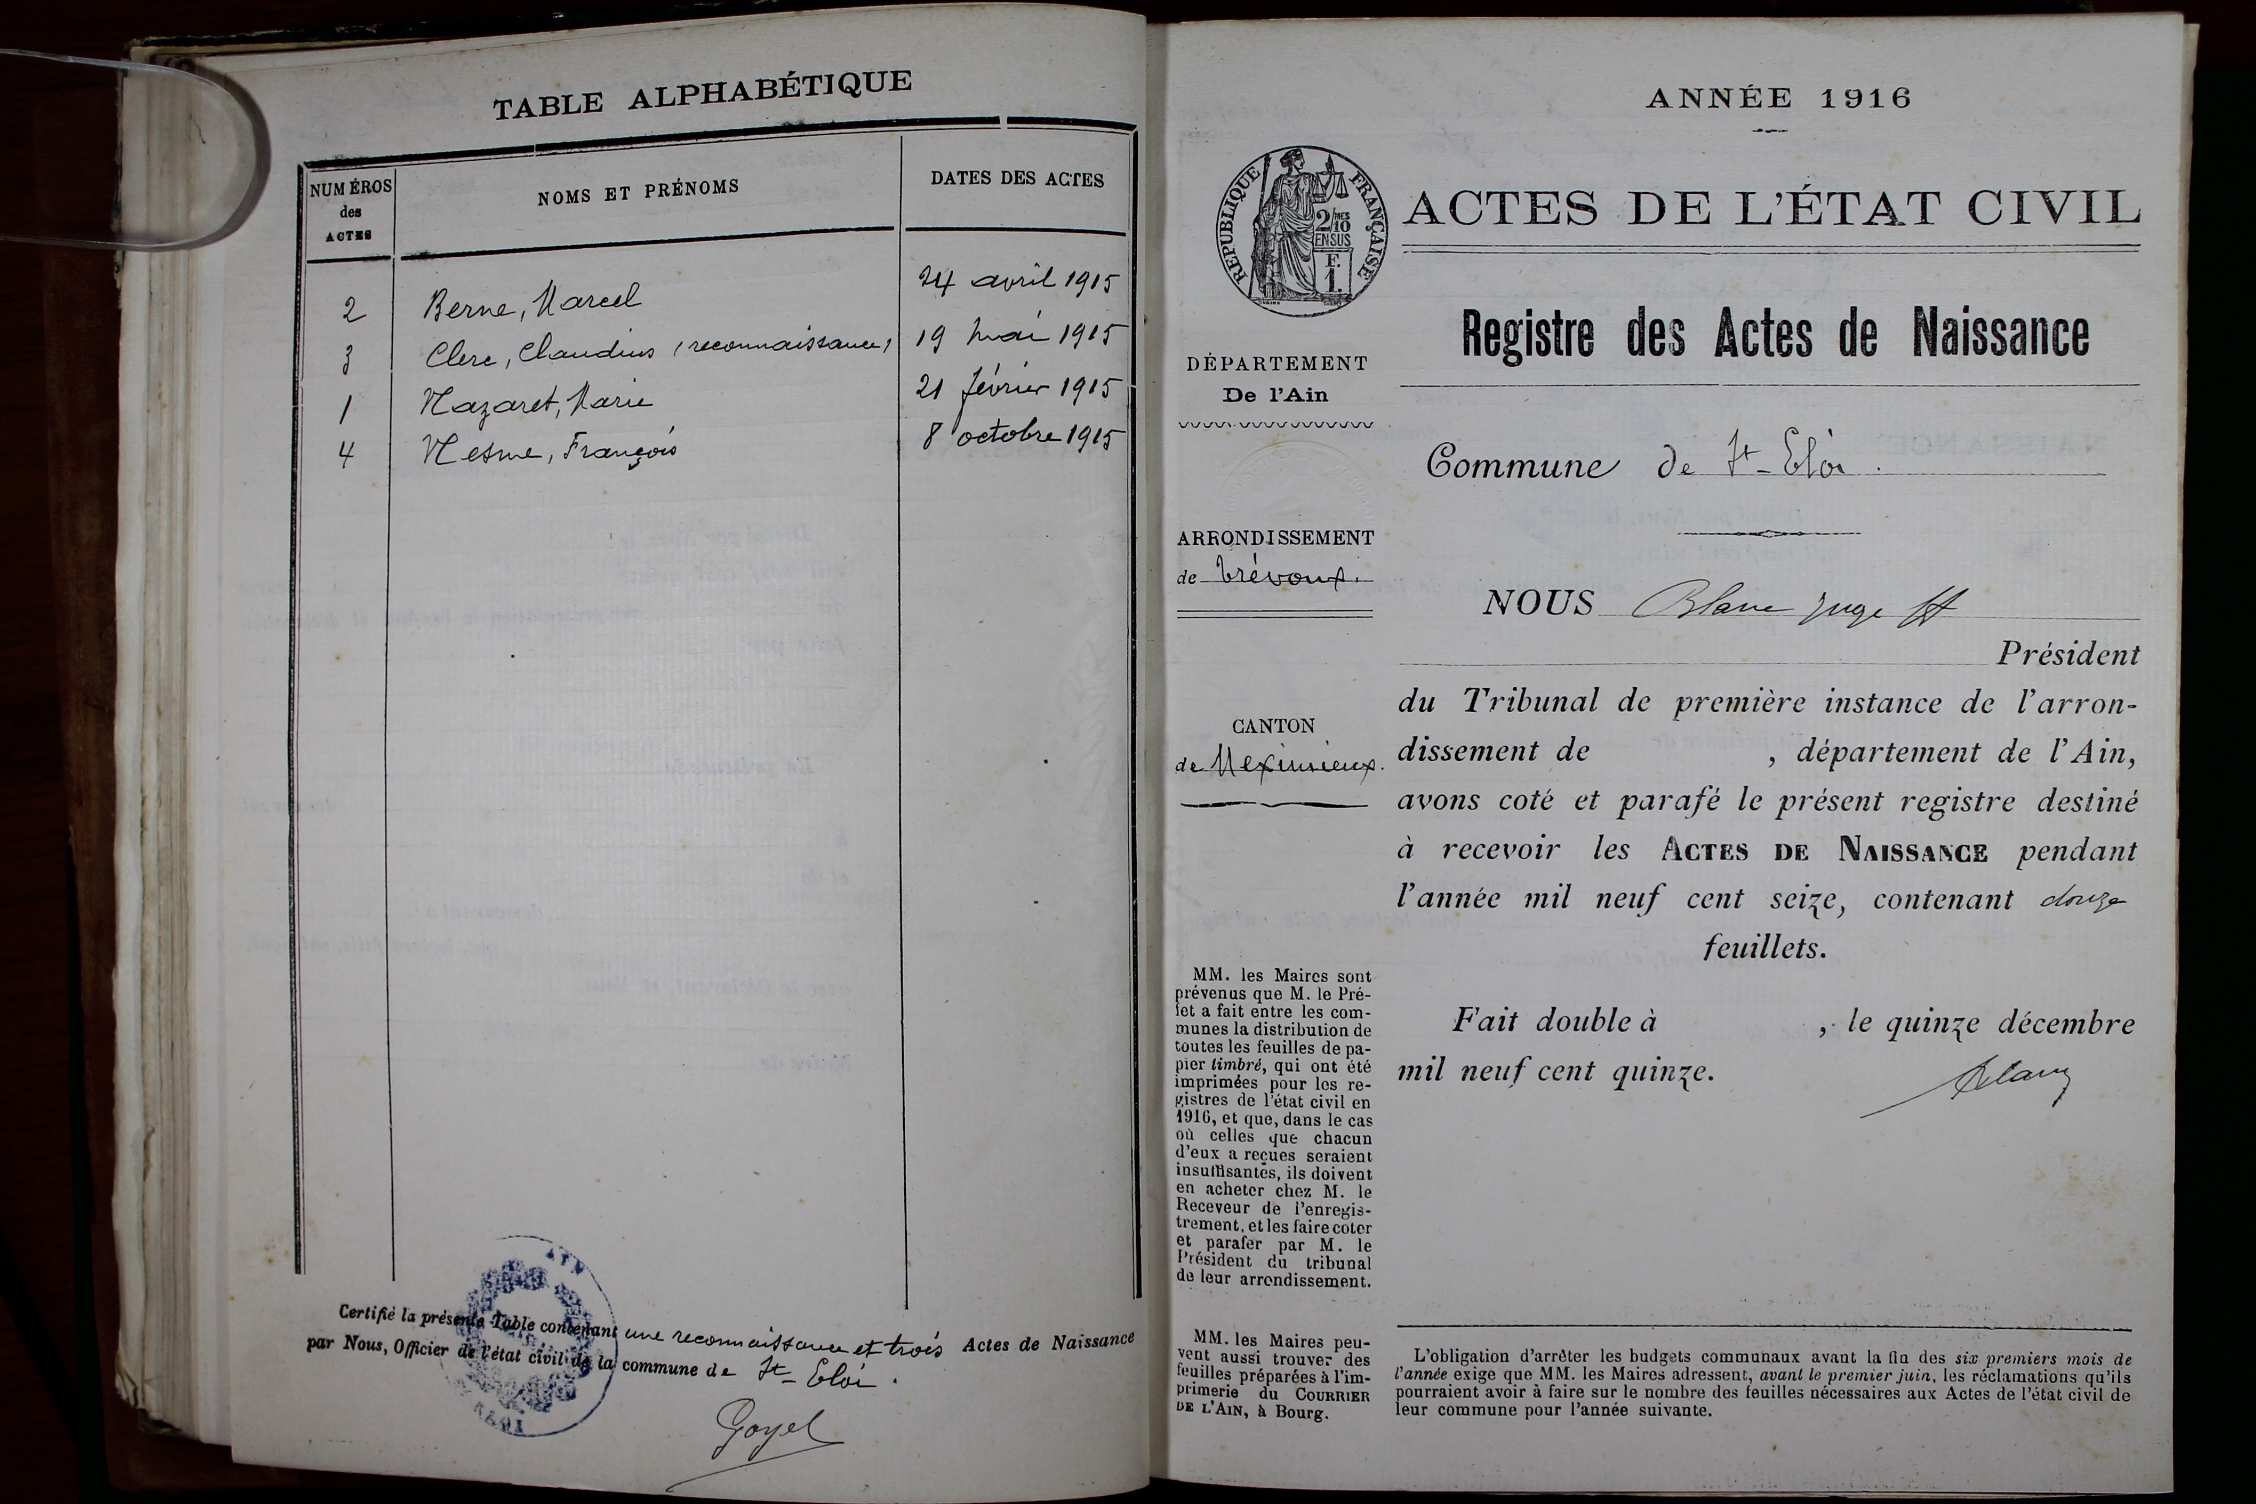 TABLE ALPHABÉTIQUE
NUMÉROS
des
ACTES
NOMS ET PRÉNOMS
DATES DES ACTES
2 Berne, Marcel 24 avril 1915
3 Clerc, Claudius (reconnaissance) 19 mai 1915
1 Mazaret, Marie 21 février 1915
4 Mesme, François 8 octobre 1915
Certifié la présente Table contenant une reconnaissance et trois Actes de Naissance
par Nous, Officier de l'état civil de la commune de St-Eloi.
AIN
Goyet
ANNÉE 1916
RÉPUBLIQUE FRANÇAISE
2/10 MES
EN SUS
F.
1.
ACTES DE L'ÉTAT CIVIL
Registre des Actes de Naissance
DÉPARTEMENT
De l'Ain
Commune de St-Eloi.
ARRONDISSEMENT
de Trévoux.
CANTON
de Meximieux.
NOUS Blanc juge ff
Président
du Tribunal de première instance de l'arron-
dissement de , département de l'Ain,
avons coté et parafé le présent registre destiné
à recevoir les ACTES DE NAISSANCE pendant
l'année mil neuf cent seize, contenant douze
feuillets.
Fait double à , le quinze décembre
mil neuf cent quinze.
Blanc
MM. les Maires sont
prévenus que M. le Pré-
fet a fait entre les com-
munes la distribution de
toutes les feuilles de pa-
pier timbré, qui ont été
imprimées pour les re-
gistres de l'état civil en
1916, et que, dans le cas
où celles que chacun
d'eux a reçues seraient
insuffisantes, ils doivent
en acheter chez M. le
Receveur de l'enregis-
trement, et les faire coter
et parafer par M. le
Président du tribunal
de leur arrondissement.
MM. les Maires peu-
vent aussi trouver des
feuilles préparées à l'im-
primerie du COURRIER
DE L'AIN, à Bourg.
L'obligation d'arrêter les budgets communaux avant la fin des six premiers mois de
l'année exige que MM. les Maires adressent, avant le premier juin, les réclamations qu'ils
pourraient avoir à faire sur le nombre des feuilles nécessaires aux Actes de l'état civil de
leur commune pour l'année suivante.